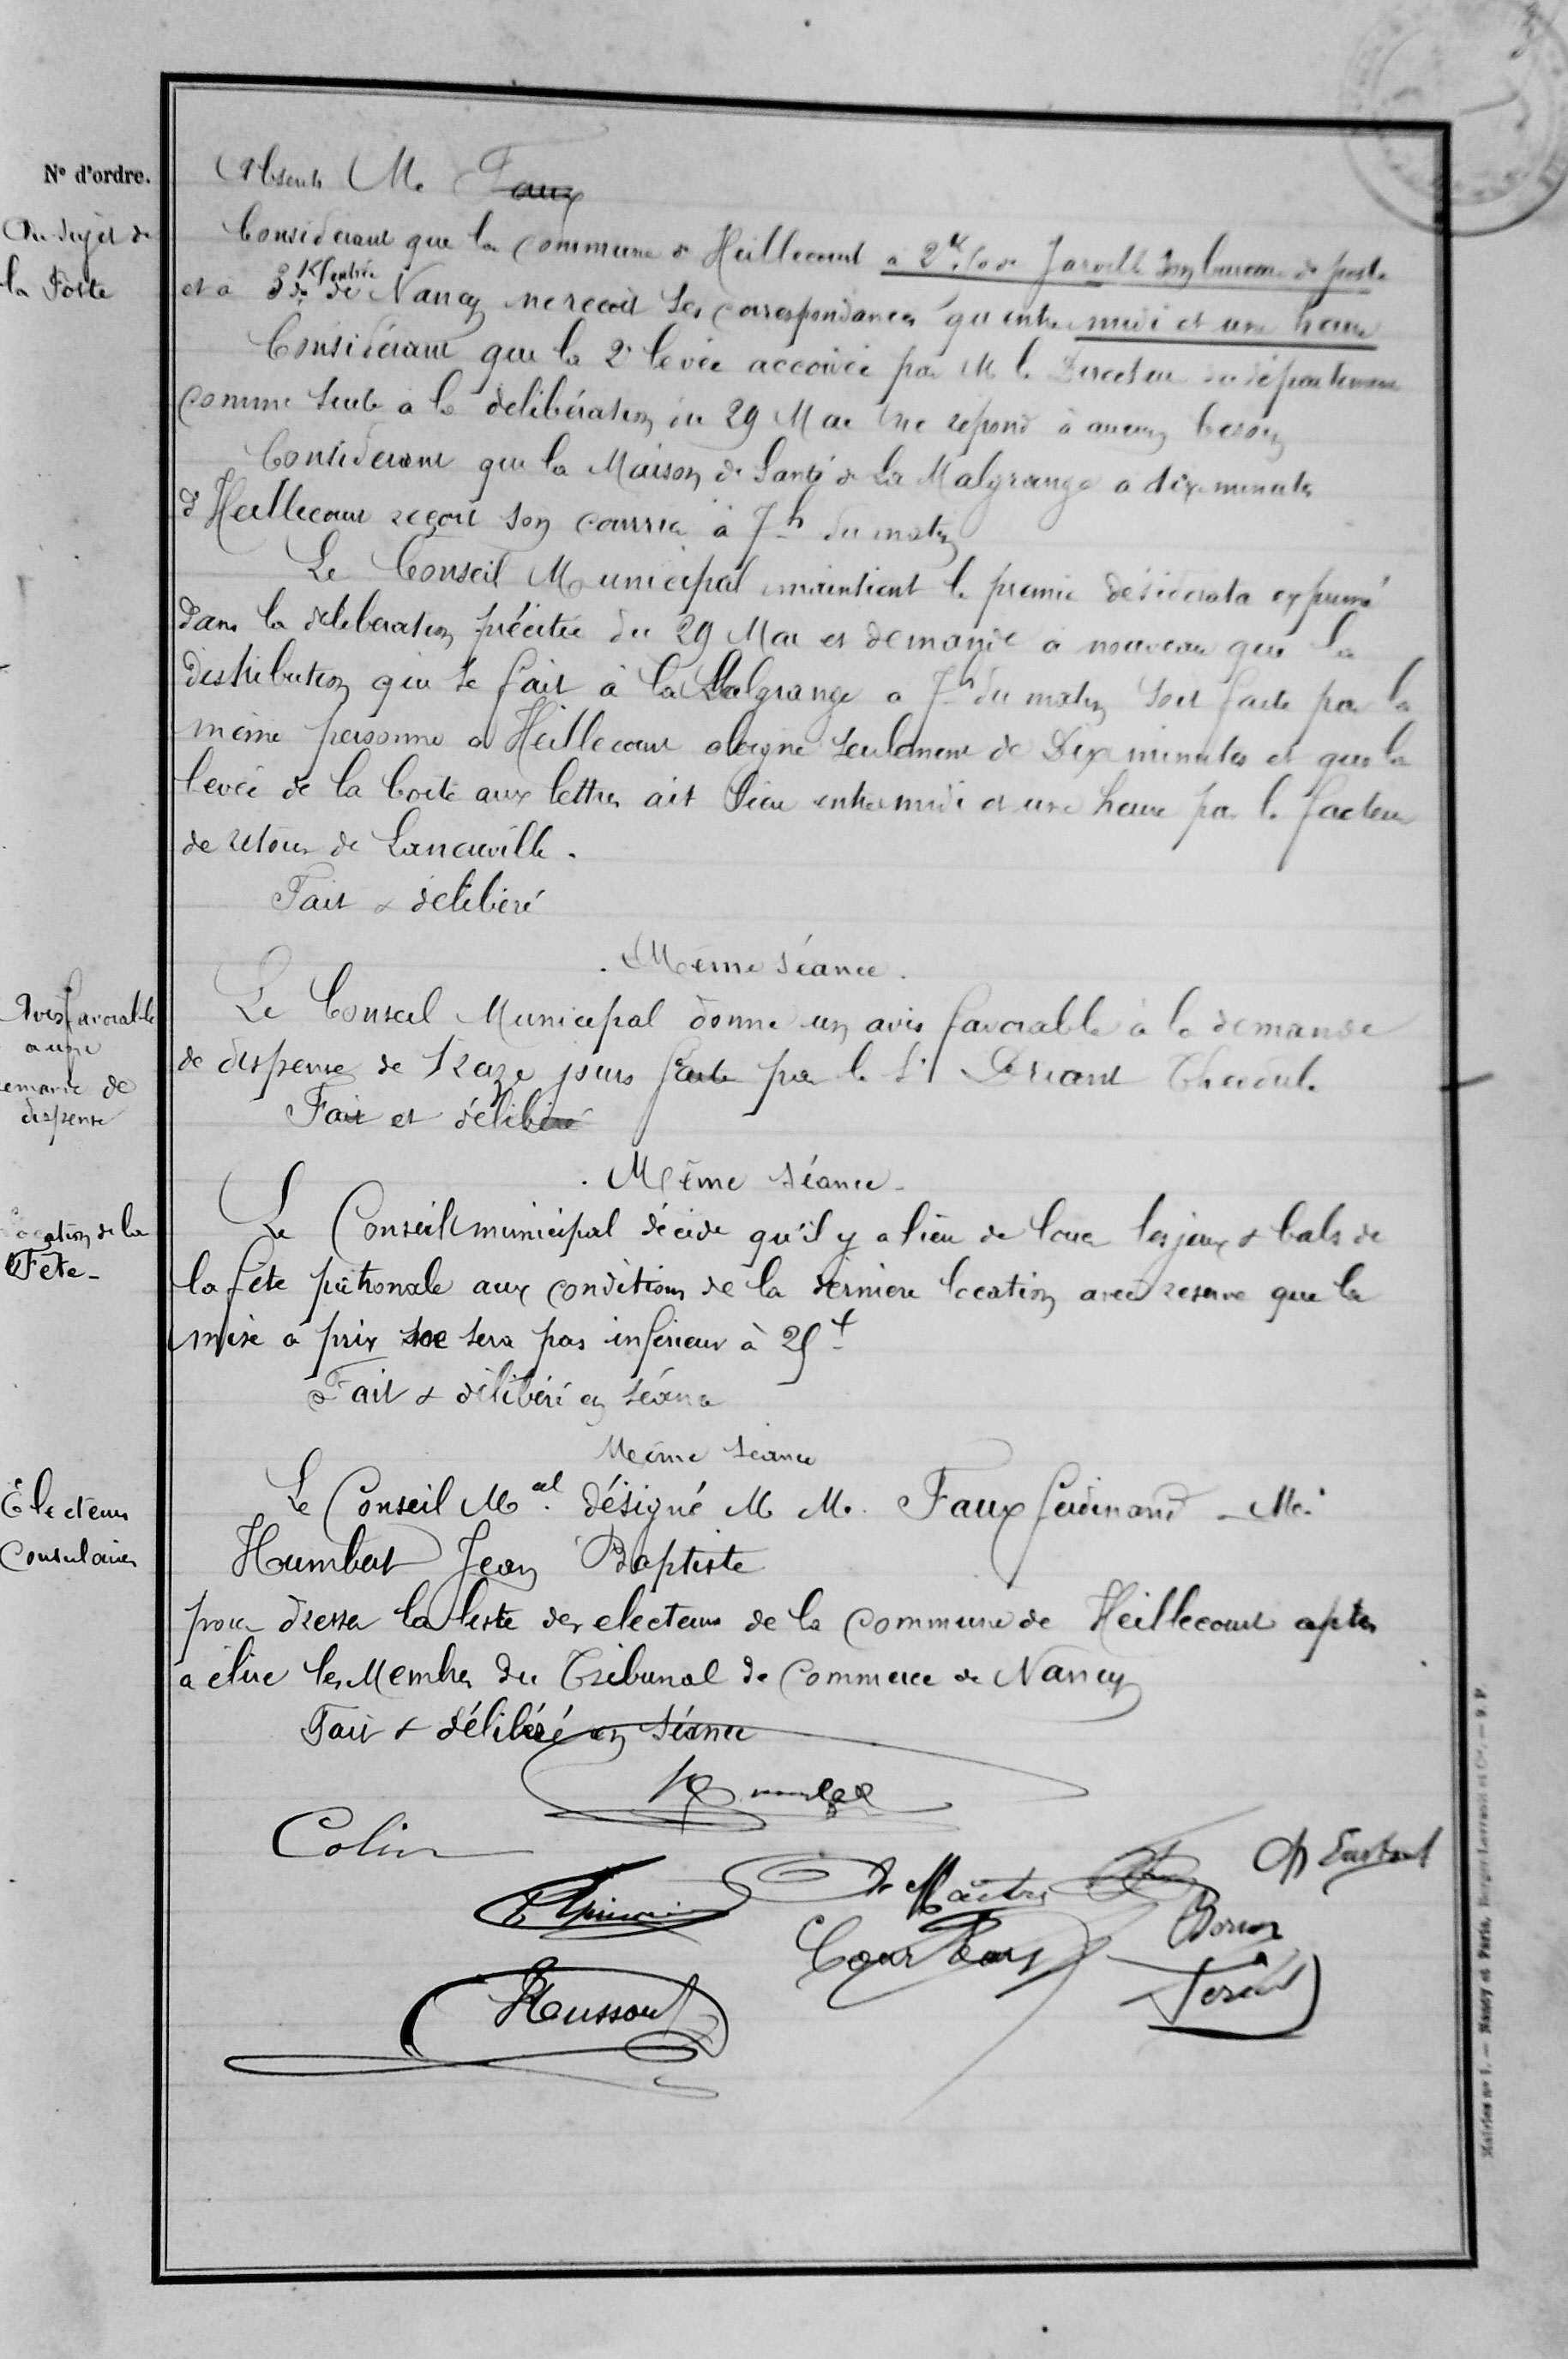 N° d'ordre.
Absents M. Faux
Au sujet de
la Poste
Considerant que la commune de Heillecourt a 2 K. de Jarville son bureau de poste
et a 3 K. de Nancy ne reçoit ses correspondances qu'entre midi et une heure
Considérant que la 2e levée accordée par M le Directeur du département
comme suite a la délibération du 29 Mai ne répond à aucun besoin
Considerant que la Maison de Santé de La Malgrange a dix minutes
d'Heillecourt reçoit son courrier à 7h du matin
Le Conseil Municipal maintient le premier désidérata exprimé
dans la déliberation précitée du 29 Mai et demande a nouveau que la
distribution qui se fait à la Malgrange a 7h du matin soit faite par la
même personne a Heillecourt eloigné seulement de Dix minutes et que la
levée de la boite aux lettres ait lieu entre midi et une heure par le facteur
de retour de Laneuville.
Fait & délibéré
. Même séance .
Avis favorable
a une
emande de
dispense
Le Conseil Municipal donne un avis favorable à la demande
de dispense de treize jours faite par le Sr Driant
Fait et délibéré
. Même séance -
Location de la
Fête -
Le Conseil municipal décide qu'il y a lieu de louer les jeux & bals de
la fête patronale aux conditions de la derniere location avec reserve que la
mise a prix ne sera pas inférieur à 25f
Fait & délibéré en séance
Même séance
Électeurs
Consulaires
Le Conseil Mal désigné M M. Faux ferdinand -
Humbert Jean Baptiste
pour dresser la liste des electeurs de la commune de Heillecourt aptes
a élire les Membres du Tribunal de Commerce de Nancy
Fait & délibéré en séance
Colin
Le Maître
Husson
Mairies n° 1. — Nancy et Paris, Berger-Levrault et Cie. — 9. P.